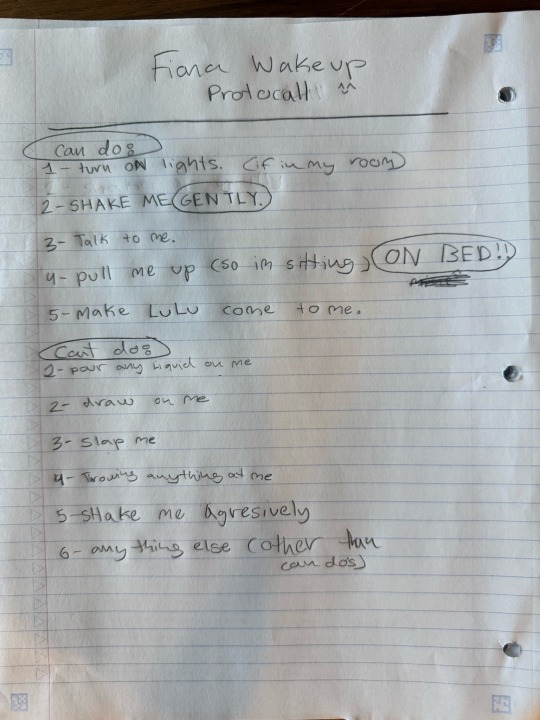 Fiona Wakeup
Protocall ^^
Can do:
1- turn ON lights. (if in my room)
2- SHAKE ME GENTLY.
3- Talk to me.
4- pull me up (so im sitting) ON BED!!
5- Make LuLu come to me.
Cant do:
1- pour any liquid on me
2- draw on me
3- slap me
4- Throwing anything at me
5- Shake me Agresively
6- any thing else (other than
can do's)